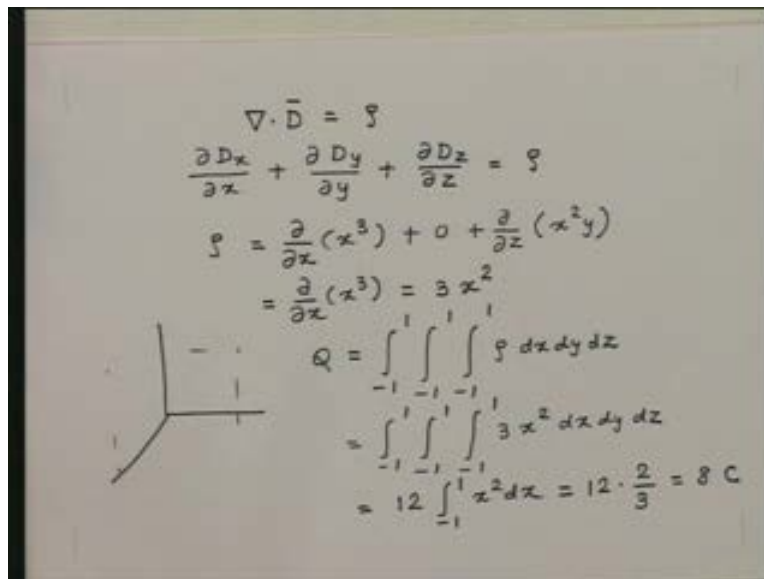 ∇·D̄ = ρ
∂Dx/∂x + ∂Dy/∂y + ∂Dz/∂z = ρ
ρ = ∂/∂x (x³) + 0 + ∂/∂z (x²y)
= ∂/∂x (x³) = 3x²
Q = ∫₋₁¹ ∫₋₁¹ ∫₋₁¹ ρ dx dy dz
= ∫₋₁¹ ∫₋₁¹ ∫₋₁¹ 3x² dx dy dz
= 12 ∫₋₁¹ x² dx = 12 · 2/3 = 8 C